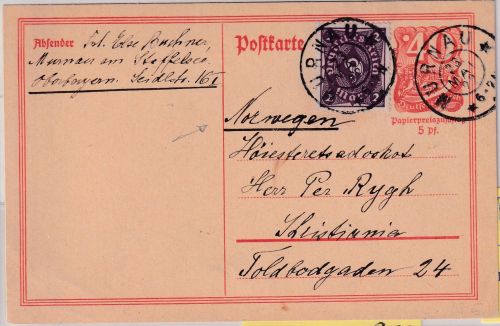 Absender Frl. Else Buchner,
Murnau am Staffelsee
Oberbayern, Seidlstr. 16I
Postkarte
MURNAU
40
MURNAU
MAI
Papierpreiszuschlag
5 Pf.
Norwegen
Höiesteretsadvokat
Herr Per Rygh
Kristiania
Toldbodgaden 24